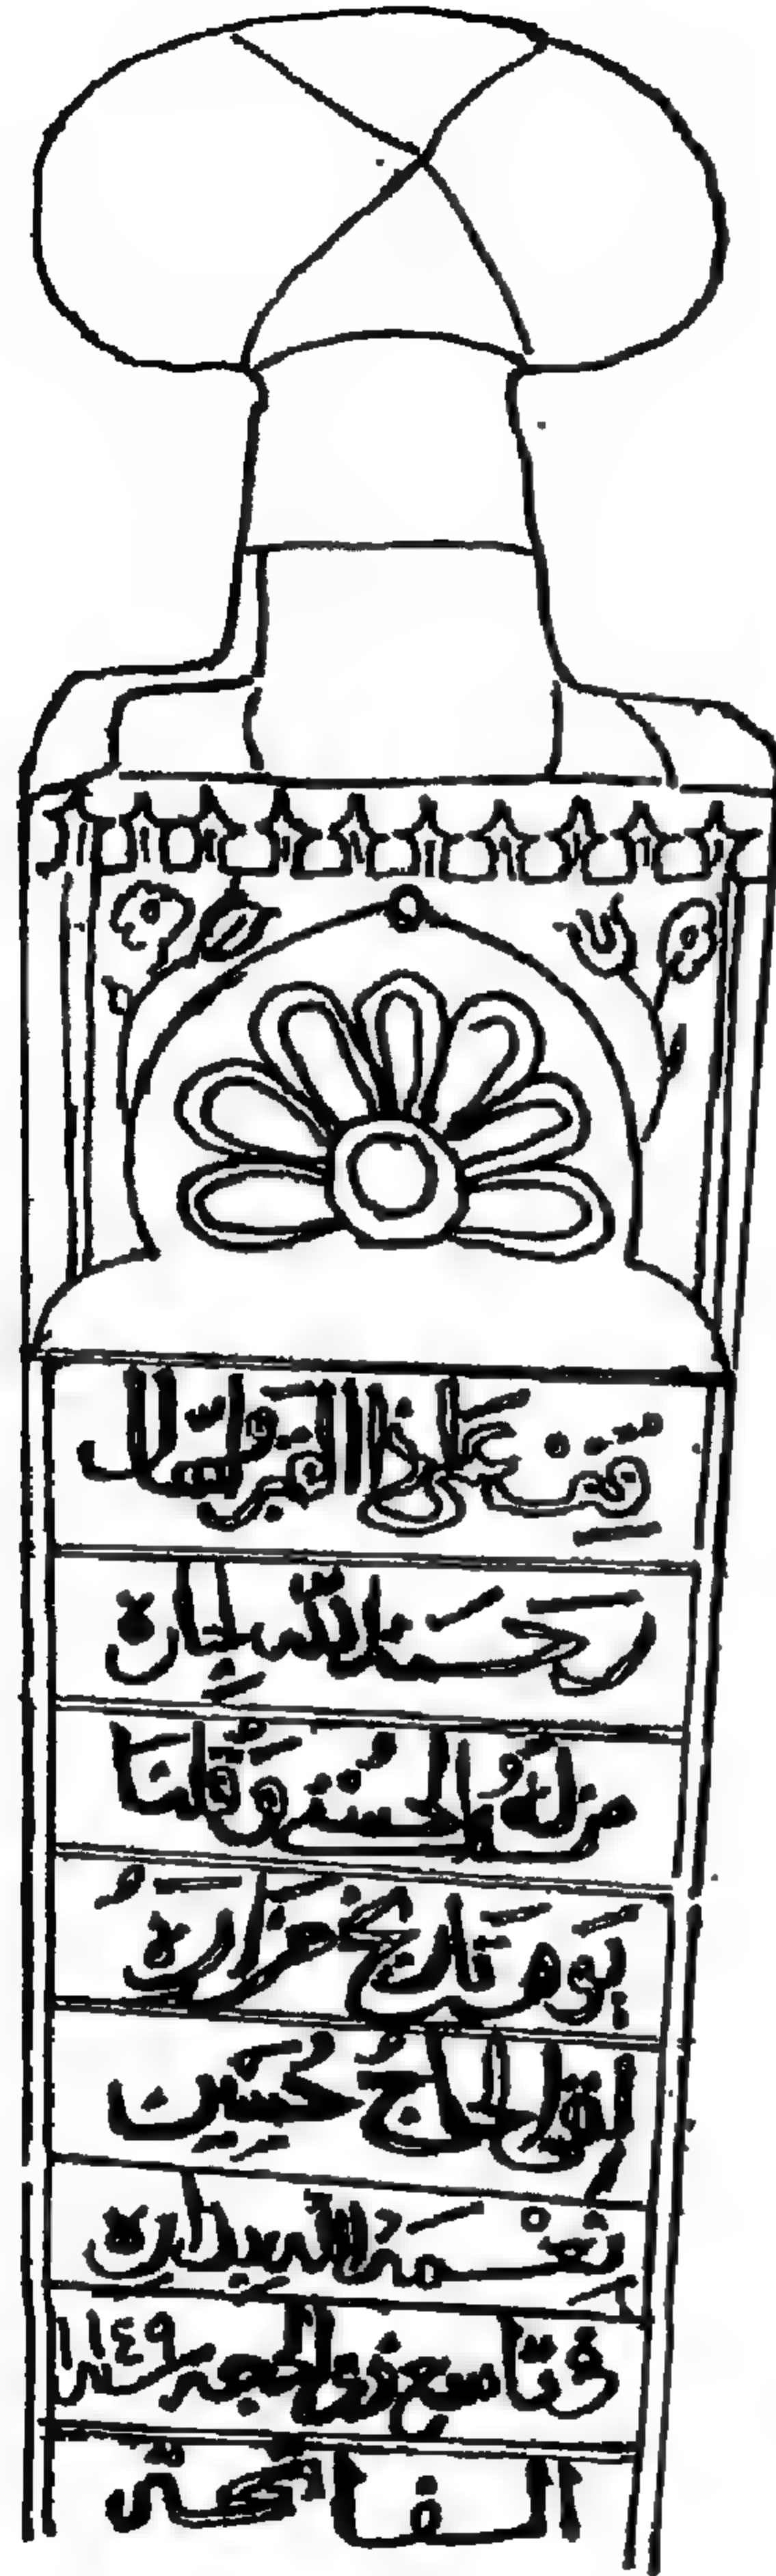 قف على ذا القبر واسال
رحمة الله لجاره
من له الحسنى وقلنا
يوم تاريخ مزاره
لقي الحاج حسين
نعمة الله بداره
في تاسع ذي الحجة سنة ١١٤٩
الفاتحة